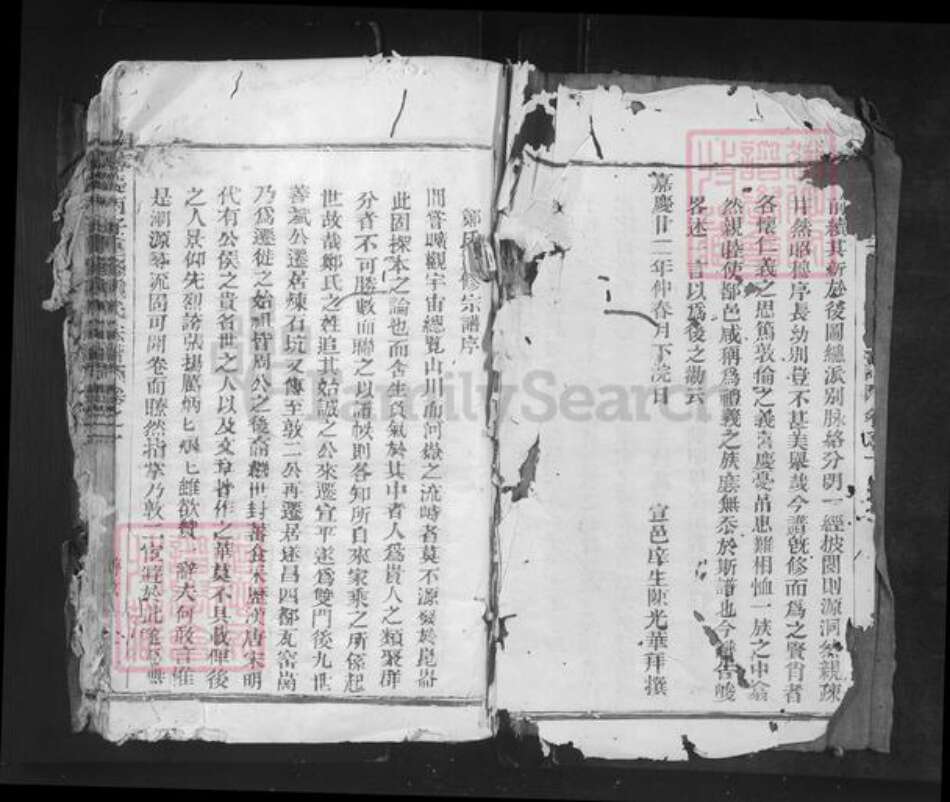 前續其新於後圖總派別脉絡分明一經披閱則源洞然親疎
井然昭穆序長幼別豈不甚美舉哉今譜旣修而爲之賢肖者
各懷仁義之思篤敦倫之義喜慶憂苗患難相恤一族之中翕
然親睦使鄰邑咸稱爲禮義之族庶無忝於斯譜也今譜告竣
畧述 言以爲後之勸云
嘉慶廿二年仲春月下浣日
宣邑庠生陳光華拜撰
鄭氏 修宗譜序
間嘗曠觀宇宙總覧山川而河嶽之流峙者莫不源發於崑崙
此固探本之論也而含生負氣於其中者人爲貴人之類聚群
分者不可勝數而聯之以譜帙則各知所自來家乘之所係起
世故哉鄭氏之姓追其始誠之公來遷宣平遂爲雙門後九世
善 公遷居練石坑又傳至敦二公再遷居遂昌四都瓦窑崗
乃爲遷徙之始祖皆周公之後裔 世封蕃食采歷漢唐宋明
代有公侯之貴名世之人以及文章皆作之華莫不具載俾後
之人景仰先烈誇張揚厲炳匕烺匕雖欲贊 辭夫何敢言惟
是溯源尋流固可開卷而瞭然指掌乃敦二 遷於此
FamilySearch